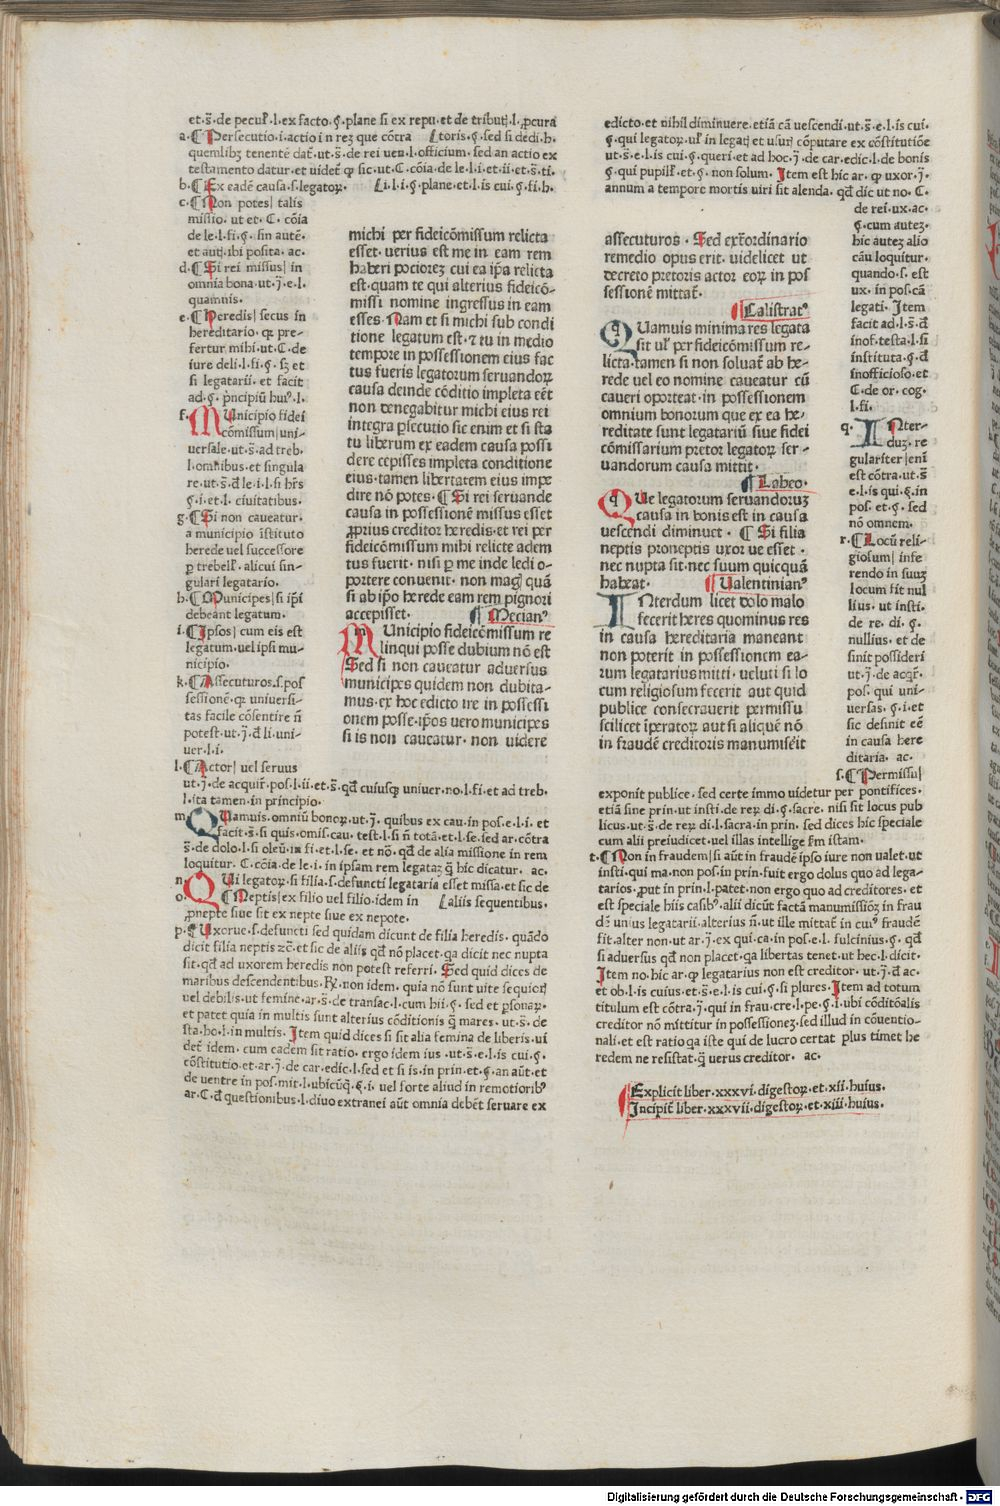 et.s̄.de pecul̕.l.ex facto.ꝯ.plane si ex repu.et de tributꝭ.l.ꝓcura
a.¶Persecutio.i.actio in reꝫ que cōtra toris.ꝯ.sed si dedi.h.
quemlibꝫ tenentē dat̕.ut.s̄.de rei uen.l.officium. sed an actio ex
testamento datur.et uidet̕ ꝙ sic.ut.C.cōia.de le.l.i.et ii.et s̄.ti.
b.¶Ex eadē causa.s.legatoꝝ. l.i.l.i.ꝯ.plane.et.l.is cui.ꝯ.fi.h.
c.¶Non potes| talis
missio. ut et. C. cōia
de le.l.fi.ꝯ. sin autē.
et autꝭ.ibi posita. ac.
d.¶Si rei missus| in
omnia bona.ut.j̄.e.l.
quamnis.
e.¶Heredis| secus in
hereditario. qꝛ pre-
fertur mihi.ut.C.de
iure deli.l.fi.ꝯ. sꝫ et
si legatarii. et facit
ad.ꝯ. pncipiū hu⁹.l.
f. MUnicipio fidei
cōmissum|uni-
uersale.ut.s̄.ad treb.
l.omnibus.et singula
re.ut.s̄.đ le.i.l.si hr̄s
ꝯ.i.et.l. ciuitatibus.
g.¶Si non caueatur.
a municipio ī̄stituto
herede uel successore
ꝑ trebell̕. alicui sin-
gulari legatario.
h.¶Municipes|si ip̄i
debeant legatum.
i.¶Ipsos| cum eis est
legatum.uel ipsi mu-
nicipio.
k.¶Assecuturos.s.pos
sessionē.qꝛ uniuersi-
tas facile cōsentire n̄
potest.ut.j̄.đ li.uni-
uer.l.i.
l.¶Actor| uel seruus
ut.j̄.de acquir̕.pos.l.ii.et.s̄.qđ cuiusqꝫ uniuer.no.l.fi.et ad treb.
l.ita tamen.in principio.
m. QUamuis.omniū bonoꝝ.ut.j̄. quibus ex cau.in pos.e.l.i. et
facit.s̄.si quis.omis.cau. test.l.si n̄ totā.et.l.se.sed ar.cōtra
s̄.de dolo.l.si oleū.in fi.et.l.se. et nō. qđ de alia missione in rem
loquitur. C.cōia.de le.i. in ipsam rem legataꝫ q̄ hic dicatur. ac.
n. QUi legatoꝝ.si filia.s.defuncti legataria esset missa.et sic de
o. ¶Neptis|ex filio uel filio.idem in aliis sequentibus.
ꝓnepte siue sit ex nepte siue ex nepote.
p.¶Uxorue.s.defuncti sed quidam dicunt de filia heredis. quādo
dicit filia neptis ꝛc̄.et sic de aliis qđ nō placet.qa dicit nec nupta
sit.qđ ad uxorem heredis non potest referri. Sed quid dices de
maribus descendentibus. ℞. non idem. quia nō sunt uite sequiorꝭ
uel debilis.ut femine.ar.s̄.de transac.l.cum hii.ꝯ. sed et ꝑsonaꝝ.
et patet quia in multis sunt alterius cōditionis q̄ mares. ut.s̄. de
sta.ho.l.in multis. Item quid dices si sit alia femina de liberis.ui
det̕ idem. cum eadem sit ratio. ergo idem ius .ut.s̄.e.l.is cui.ꝯ.
cōstitutio.et ar.j̄.de car.edic.l.sed et si is.in prin.et.ꝯ.an aūt.et
de uentre in pos.mit.l.ubicūqꝫ.ꝯ.i. uel forte aliud in remotiorib⁹
ar.C.đ questionibus.l.diuo extranei aūt omnia debēt seruare ex
michi per fideicōmissum relicta
esset. uerius est me in eam rem
haberi pocioreꝫ cui ea ip̄a relicta
est.quam te qui alterius fideicō-
missi nomine ingressus in eam
esses. Nam et si michi sub condi
tione legatum est.⁊ tu in medio
tempore in possessionem eius fac
tus fueris legatorum seruandoꝝ
causa deinde cōditio impleta eēt
non denegabitur michi eius rei
integra ꝑsecutio sic enim et si sta
tu liberum ex eadem causa possi
dere cepisses impleta conditione
eius.tamen libertatem eius impe
dire nō potes. ¶Si rei seruande
causa in possessionē missus esset
ꝓprius creditor heredis.et rei per
fideicōmissum mihi relicte adem
tus fuerit. nisi ꝑ me inde ledi o-
portere conuenit. non magꝭ quā
si ab ip̄o herede eam rem pignori
accepisset. ¶ Mecian⁹
MUnicipio fideicōmissum re
linqui posse dubium nō est
Sed si non caueatur aduersus
municipes quidem non dubita-
mus.ex hoc edicto ire in possessi
onem posse.ip̄os uero municipes
si is non caueatur. non uidere
edicto.et nihil diminuere.etiā cā uescendi.ut.s̄.e.l.is cui.
ꝯ.qui legatoꝝ.ul̕ in legatꝭ et usurꝭ cōputare ex cōstitutiōe
ut.s̄.e.l.is cui.ꝯ.queri.et ad hoc.j̄.de car.edic.l.de bonis
ꝯ.qui pupill̕.et.ꝯ. non solum. Item est hic ar. ꝙ uxor.j̄.
annum a tempore mortis uiri sit alenda. qđ dic ut no. C.
de rei.ux.ac.
ꝯ.cum auteꝫ.
hic auteꝫ alio
cāu loquitur.
quando.s. est
ux. in pos.cā
legati. Item
facit ad.l.s̄.đ
inof.testa.l.si
instituta.ꝯ.đ
inofficioso.et
C.de or. cog.
l.fi.
assecuturos . Sed ext̕ordinario
remedio opus erit. uidelicet ut
decreto pretoris actor eoꝝ in pos
sessionē mittat̕.
¶Calistrat⁹
QUamuis minima res legata
sit ul̕ per fideicōmissum re-
licta.tamen si non soluat̕ ab he-
rede uel eo nomine caueatur cū
caueri oporteat.in possessionem
omnium bonorum que ex ea he-
reditate sunt legatariū siue fidei
cōmissarium pretor legatoꝝ ser-
uandorum causa mittit.
¶ Labeo.
QUe legatorum seruandoruꝫ
causa in bonis est in causa
uescendi diminuet . ¶ Si filia
neptis proneptis uxor ue esset .
nec nupta sit.nec suum quicquā
habeat. ¶Ualentinian⁹
INterdum licet dolo malo
fecerit heres quominus res
in causa hereditaria maneant
non poterit in possessionem ea-
rum legatarius mitti. ueluti si lo
cum religiosum fecerit aut quid
publice consecrauerit permissu
scilicet īperatoꝝ aut si aliquē nō
in fraudē creditoris manumiseit
q. INter-
duꝫ. re
gulariter|enī
est cōtra.ut.s̄
e.l.is qui.ꝯ.in
pos.et.ꝯ. sed
nō omnem.
r.¶Locū reli-
giosum| infe
rendo in suuꝫ
locum sit nul
lius. ut insti.
de re. di. ꝯ.
nullius. et de
sinit possideri
ut.j̄.de acqr̄.
pos. qui uni-
uersas. ꝯ.i.et
sic desinit eē
in causa here
ditaria. ac.
s.¶Permissu|
exponit publice. sed certe immo uidetur per pontifices.
etiā sine prin.ut insti.de reꝝ di.ꝯ.sacre. nisi sit locus pub
licus.ut.s̄.de reꝝ di.l.sacra.in prin. sed dices hic speciale
cum alii preiudicet.uel illas intellige fm istam.
t.¶Non in fraudem|si aūt in fraudē ipso iure non ualet.ut
insti.qui ma.non pos.in prin.fuit ergo dolus quo ad lega-
tarios.ꝓut in prin.l.patet.non ergo quo ad creditores. et
est speciale hiis casib⁹.alii dicūt factā manumissiōꝫ in frau
dē unius legatarii.alterius n̄.ut ille mittat̕ in cui⁹ fraudē
fit.alter non.ut ar.j̄.ex qui.ca.in pos.e.l. fulcinius.ꝯ. qđ
si aduersus qđ non placet.qa libertas tenet.ut hec.l.dicit.
Item no. hic ar.ꝙ legatarius non est creditor. ut.j̄.đ ac.
et ob.l.is cuius.et s̄.e.l.is cui.ꝯ.si plures. Item ad totum
titulum est cōtra.j̄.qui in frau.cre.l.pe.ꝯ.i.ubi cōditōalis
creditor nō mittitur in possessioneꝫ.sed illud in cōuentio-
nali.et est ratio qa iste qui de lucro certat plus timet he
redem ne resistat.q̄ uerus creditor. ac.
¶Explicit liber.xxxvi.digestoꝝ.et.xii.huius.
Incipit̕ liber.xxxvii.digestoꝝ.et.xiii.huius.
Digitalisierung gefördert durch die Deutsche Forschungsgemeinschaft - DFG